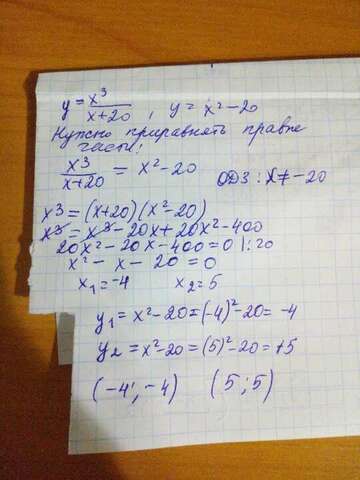 y = x³/(x+20) , y = x²-20
Нужно приравнять правые
части:
x³/(x+20) = x²-20 ОДЗ: x≠-20
x³ = (x+20)(x²-20)
x³ = x³-20x+20x²-400
20x²-20x-400=0 |:20
x²-x-20=0
x₁=-4 x₂=5
y₁=x²-20=(-4)²-20=-4
y₂=x²-20=(5)²-20=+5
(-4;-4) (5;5)